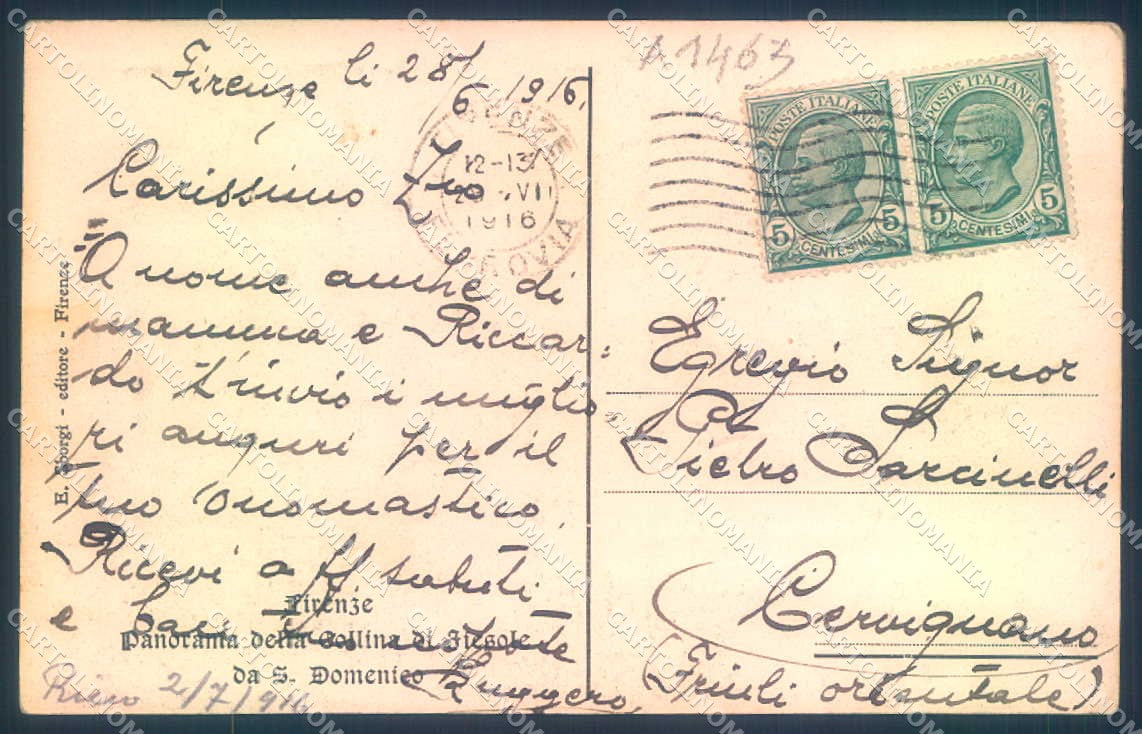 A 1463
Firenze li 28/6 1916.
FIRENZE
12-13
VII
1916
Carissimo Zio
A nome anche di
mamma e Riccar=
do t'invio i miglio=
ri auguri per il
tuo onomastico.
Ricevi aff. saluti
e baci tuo nipote
Ruggero
Risp 2/7/916
E. Sborgi - editore - Firenze
Firenze
Panorama della Collina di Fiesole
da S. Domenico
POSTE ITALIANE
5 CENTESIMI 5
POSTE ITALIANE
5 CENTESIMI 5
Egregio Signor
Pietro Sarcinelli
Cervignano
(Friuli orientale)
CARTOLINOMANIA